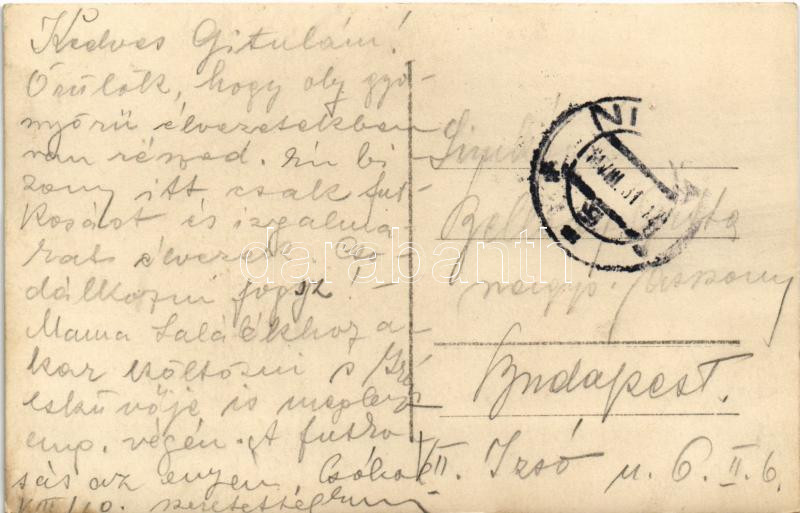 Kedves Gitulám!
Örülök, hogy oly gyö-
nyörű élvezetekben
van részed. Én bi
zony itt csak fut
kosást és izgalma
kat élvezek. Cso-
dálkozni fogsz! –
Mama Laláékhoz a-
kar költözni s
esküvője is meglesz
végén. A futko
sás az enyém. Csókol
VIII/10. szeretettel
NI
VIII. 31
nagys. asszony
Budapest.
VII. Izsó u. 6. II. 6.
darabanth